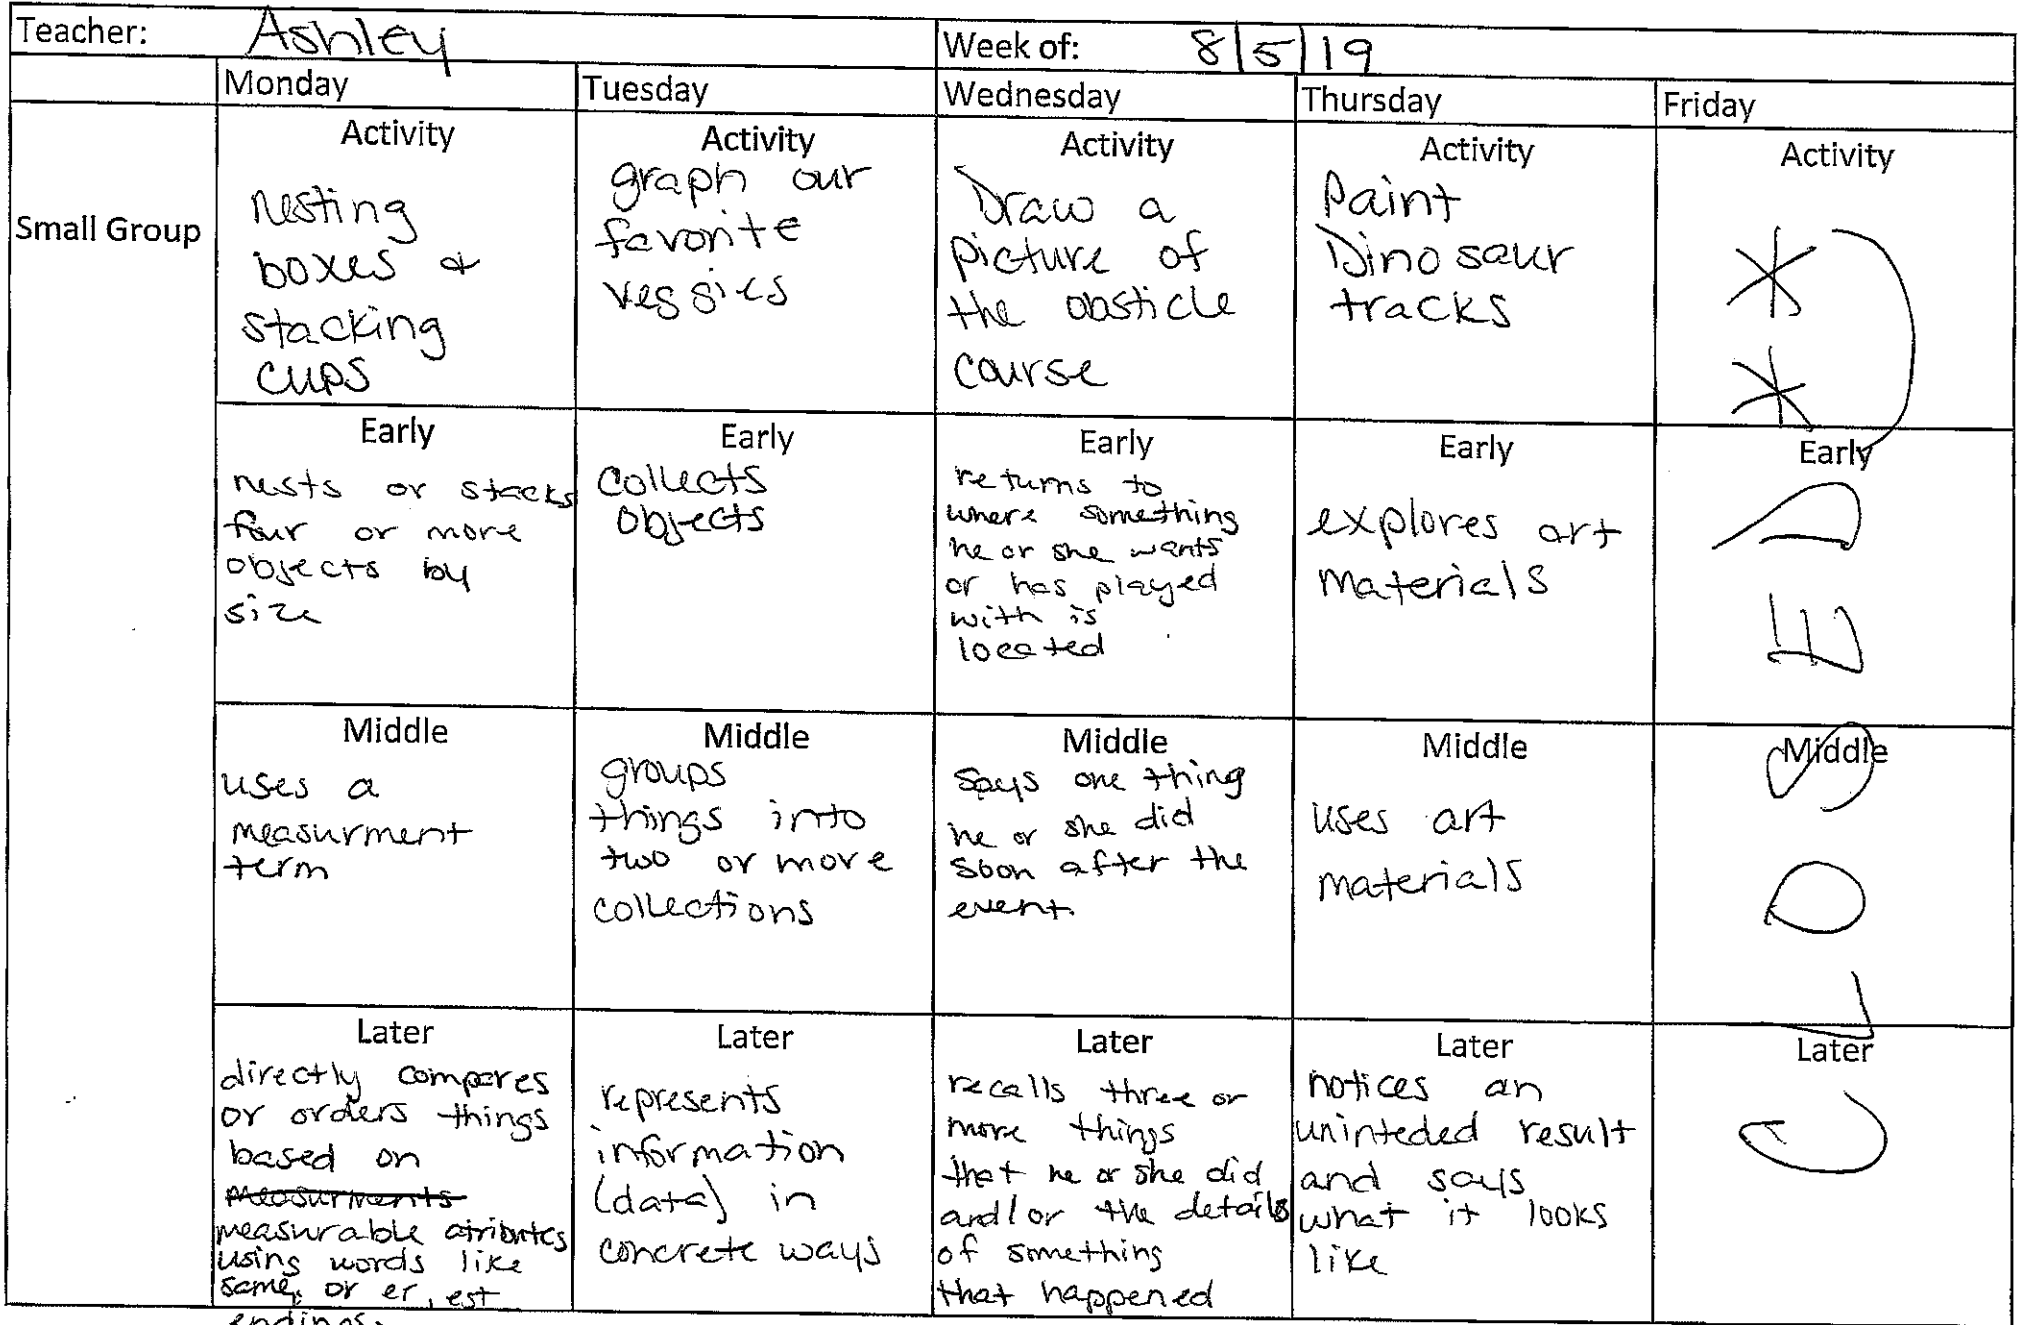 Teacher: Ashley Week of: 8/5/19
Monday Tuesday Wednesday Thursday Friday
Small Group
Activity
nesting
boxes &
stacking
cups
Activity
graph our
favorite
veggies
Activity
Draw a
picture of
the obsticle
course
Activity
Paint
Dinosaur
tracks
Activity
Early
nests or stacks
four or more
objects by
size
Early
collects
objects
Early
returns to
where something
he or she wants
or has played
with is
located
Early
explores art
materials
Early
Middle
uses a
measurment
term
Middle
groups
things into
two or more
collections
Middle
says one thing
he or she did
soon after the
event.
Middle
uses art
materials
Middle
Later
directly compares
or orders things
based on
measurments
measurable atributes
using words like
same, or er, est
endings.
Later
represents
information
(data) in
concrete ways
Later
recalls three or
more things
that he or she did
and/or the details
of something
that happened
Later
notices an
uninteded result
and says
what it looks
like
Later
CLOSED